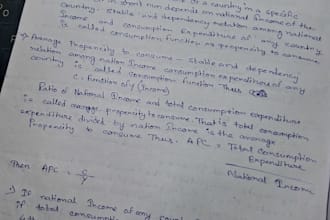 of a country in a specific
in short run depends on national Income of the
Country. Stable and dependency relation among national
Income and consumption expenditure of any country
is called consumption function or propensity to consume
Average Propensity to consume - stable and dependency
relation among nation Income consumption expenditure of any
country is called consumption function Thus
C: Function of y (Income)
Ratio of National Income and total consumption expenditure
is called average propensity to consume. That is total consumption
expenditure divided by nation Income is the average
Propensity to consume Thus. APC = Total Consumption
Expenditure
National Income
Then APC = C/Y
If national Income of any
if total consumption